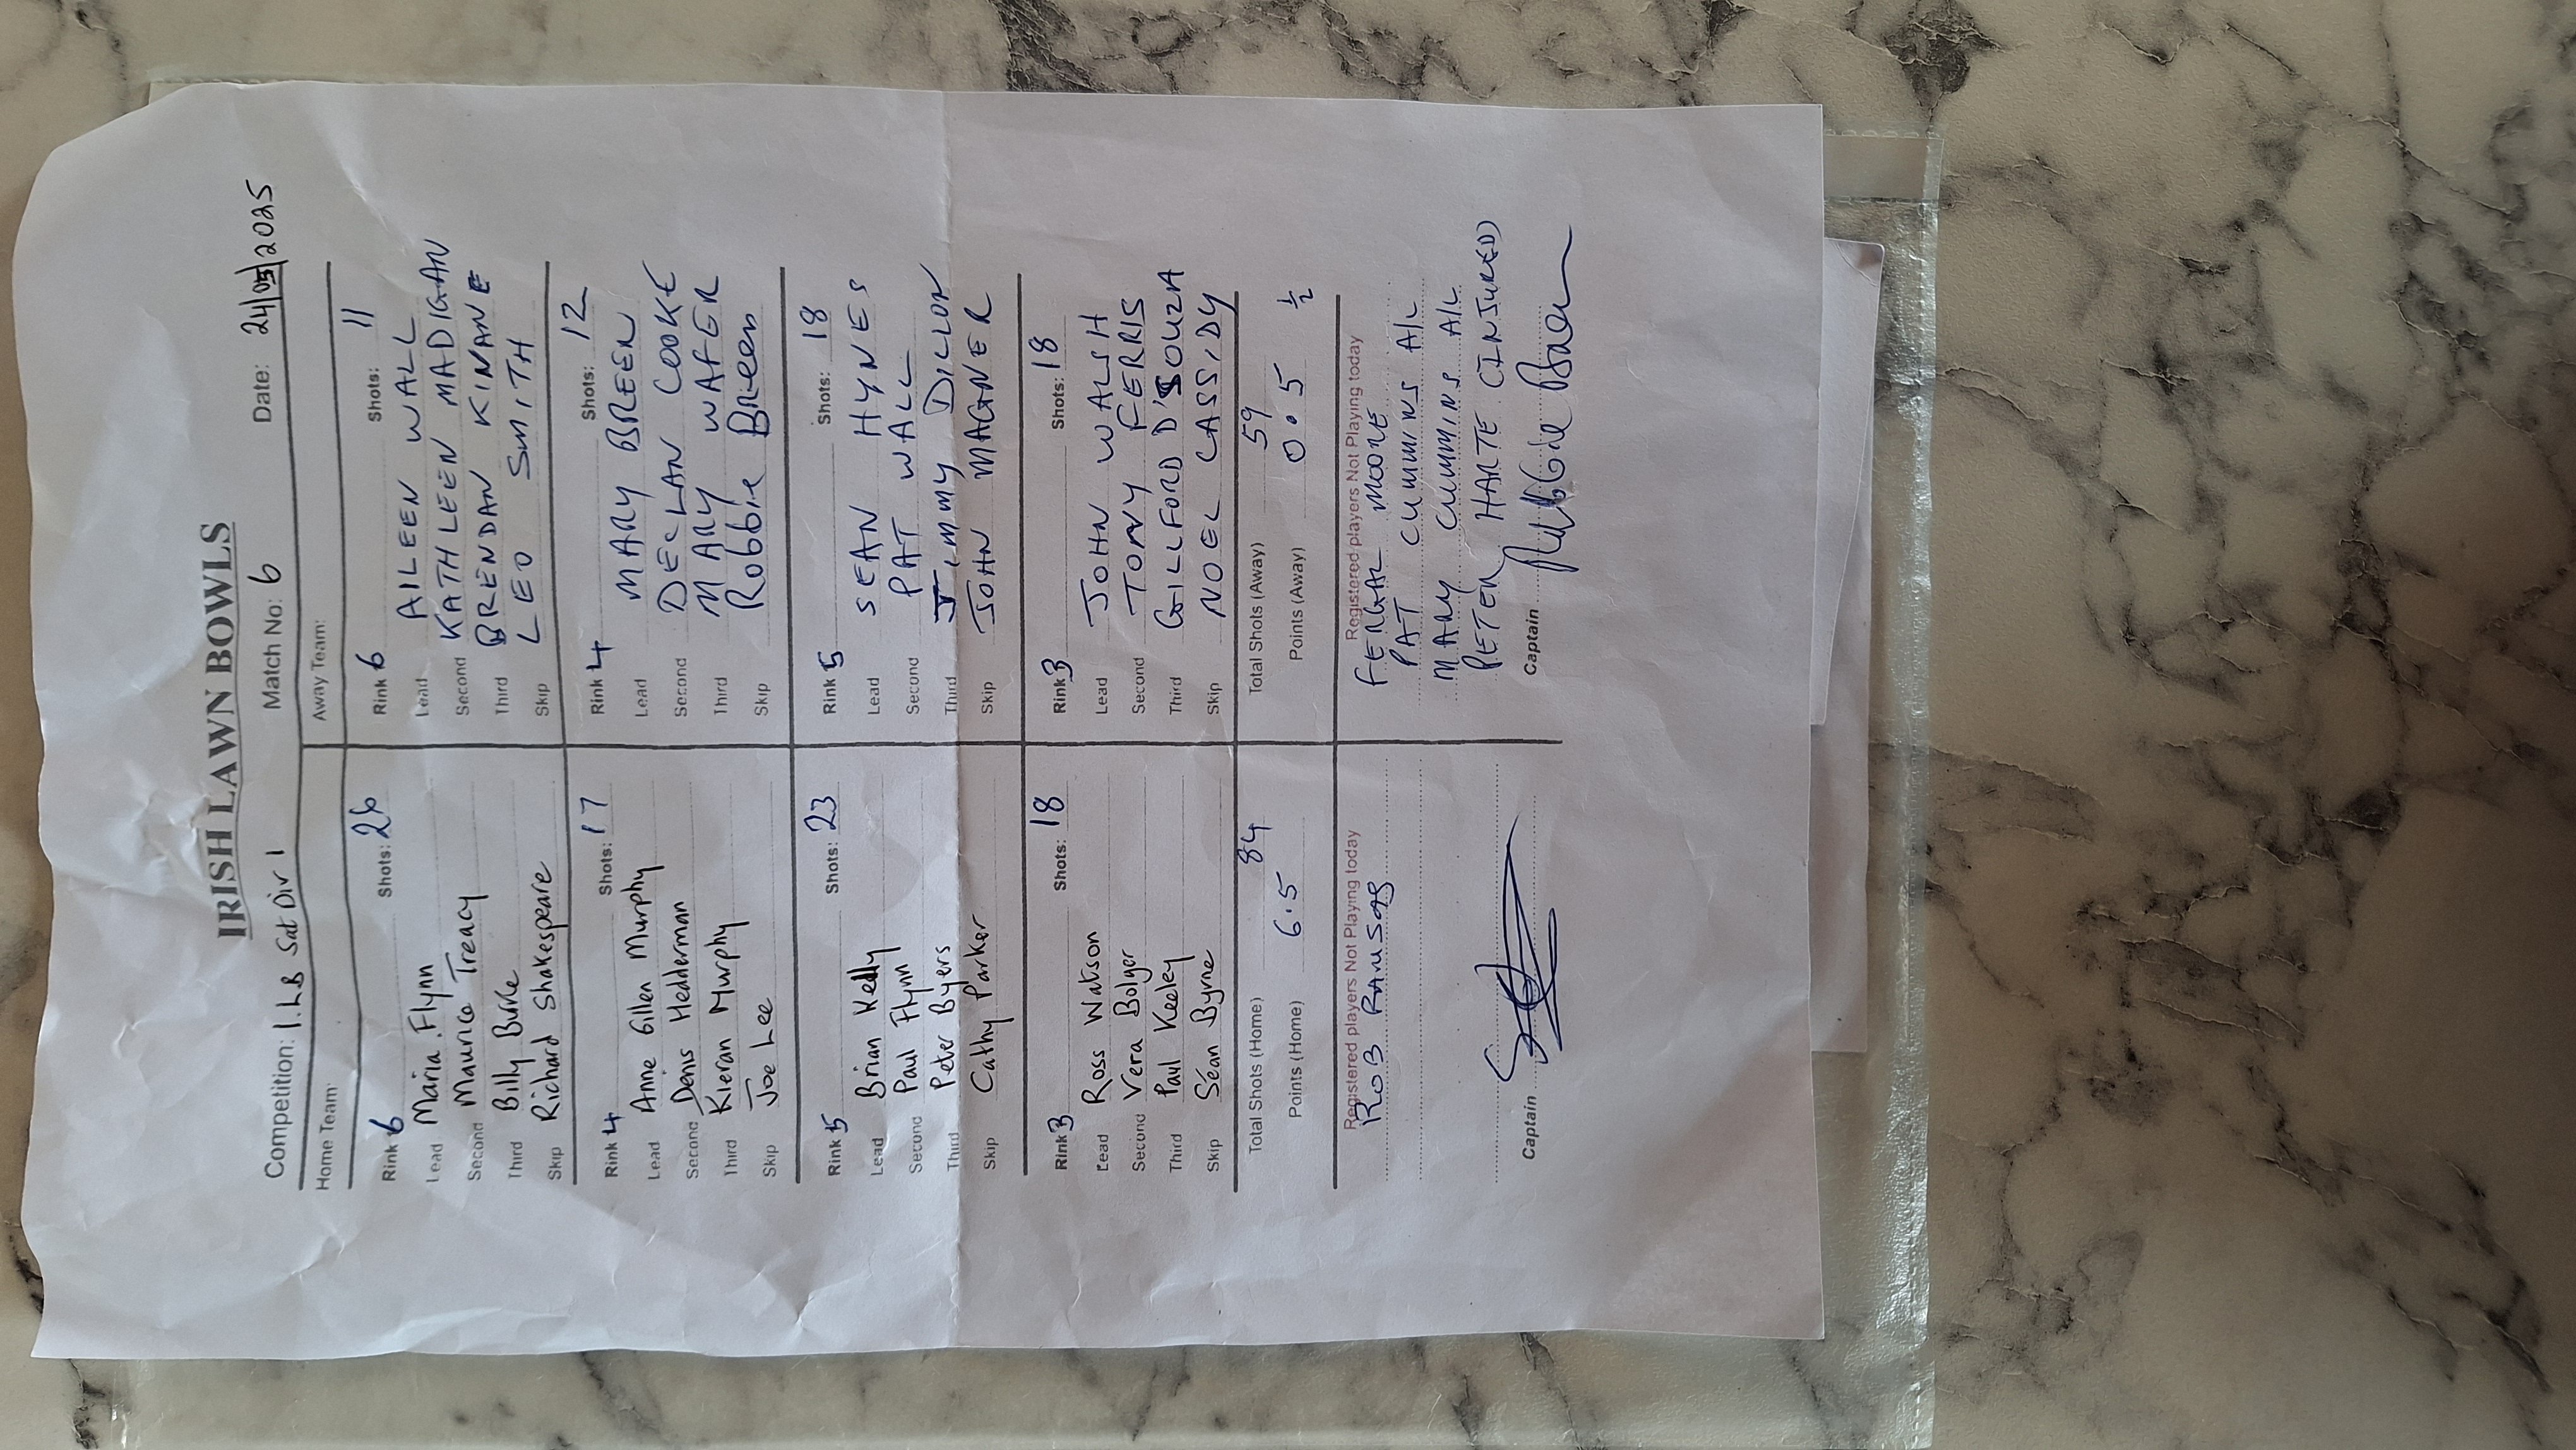 IRISH LAWN BOWLS
Competition: I.L.B Sat Div 1 Match No: 6 Date: 24/05/2025
Home Team: Away Team:
Rink 6 Shots: 26
Lead Maria Flynn
Second Maurice Treacy
Third Billy Burke
Skip Richard Shakespeare
Rink 6 Shots: 11
Lead AILEEN WALL
Second KATHLEEN MADIGAN
Third BRENDAN KINANE
Skip LEO SMITH
Rink 4 Shots: 17
Lead Anne Gillen Murphy
Second Denis Hedderman
Third Kieran Murphy
Skip Joe Lee
Rink 4 Shots: 12
Lead MARY BREEN
Second DECLAN COOKE
Third MARY WAFER
Skip Robbie Breen
Rink 5 Shots: 23
Lead Brian Kelly
Second Paul Flynn
Third Peter Byers
Skip Cathy Parker
Rink 5 Shots: 18
Lead SEAN HYNES
Second PAT WALL
Third Jimmy DILLON
Skip JOHN MAGNER
Rink 3 Shots: 18
Lead Ross Watson
Second Vera Bolger
Third Paul Keeley
Skip Séan Byrne
Rink 3 Shots: 18
Lead JOHN WALSH
Second TONY FERRIS
Third GILFORD D'SOUZA
Skip NOEL CASSIDY
Total Shots (Home) 84
Points (Home) 6.5
Total Shots (Away) 59
Points (Away) 0.5 ½
Registered players Not Playing today
ROB RAMSAY
Captain
Registered players Not Playing today
FERGAL MOORE
PAT CUMMINS A/L
MARY CUMMINS A/L
PETER HARTE (INJURED)
Captain Robbie Breen